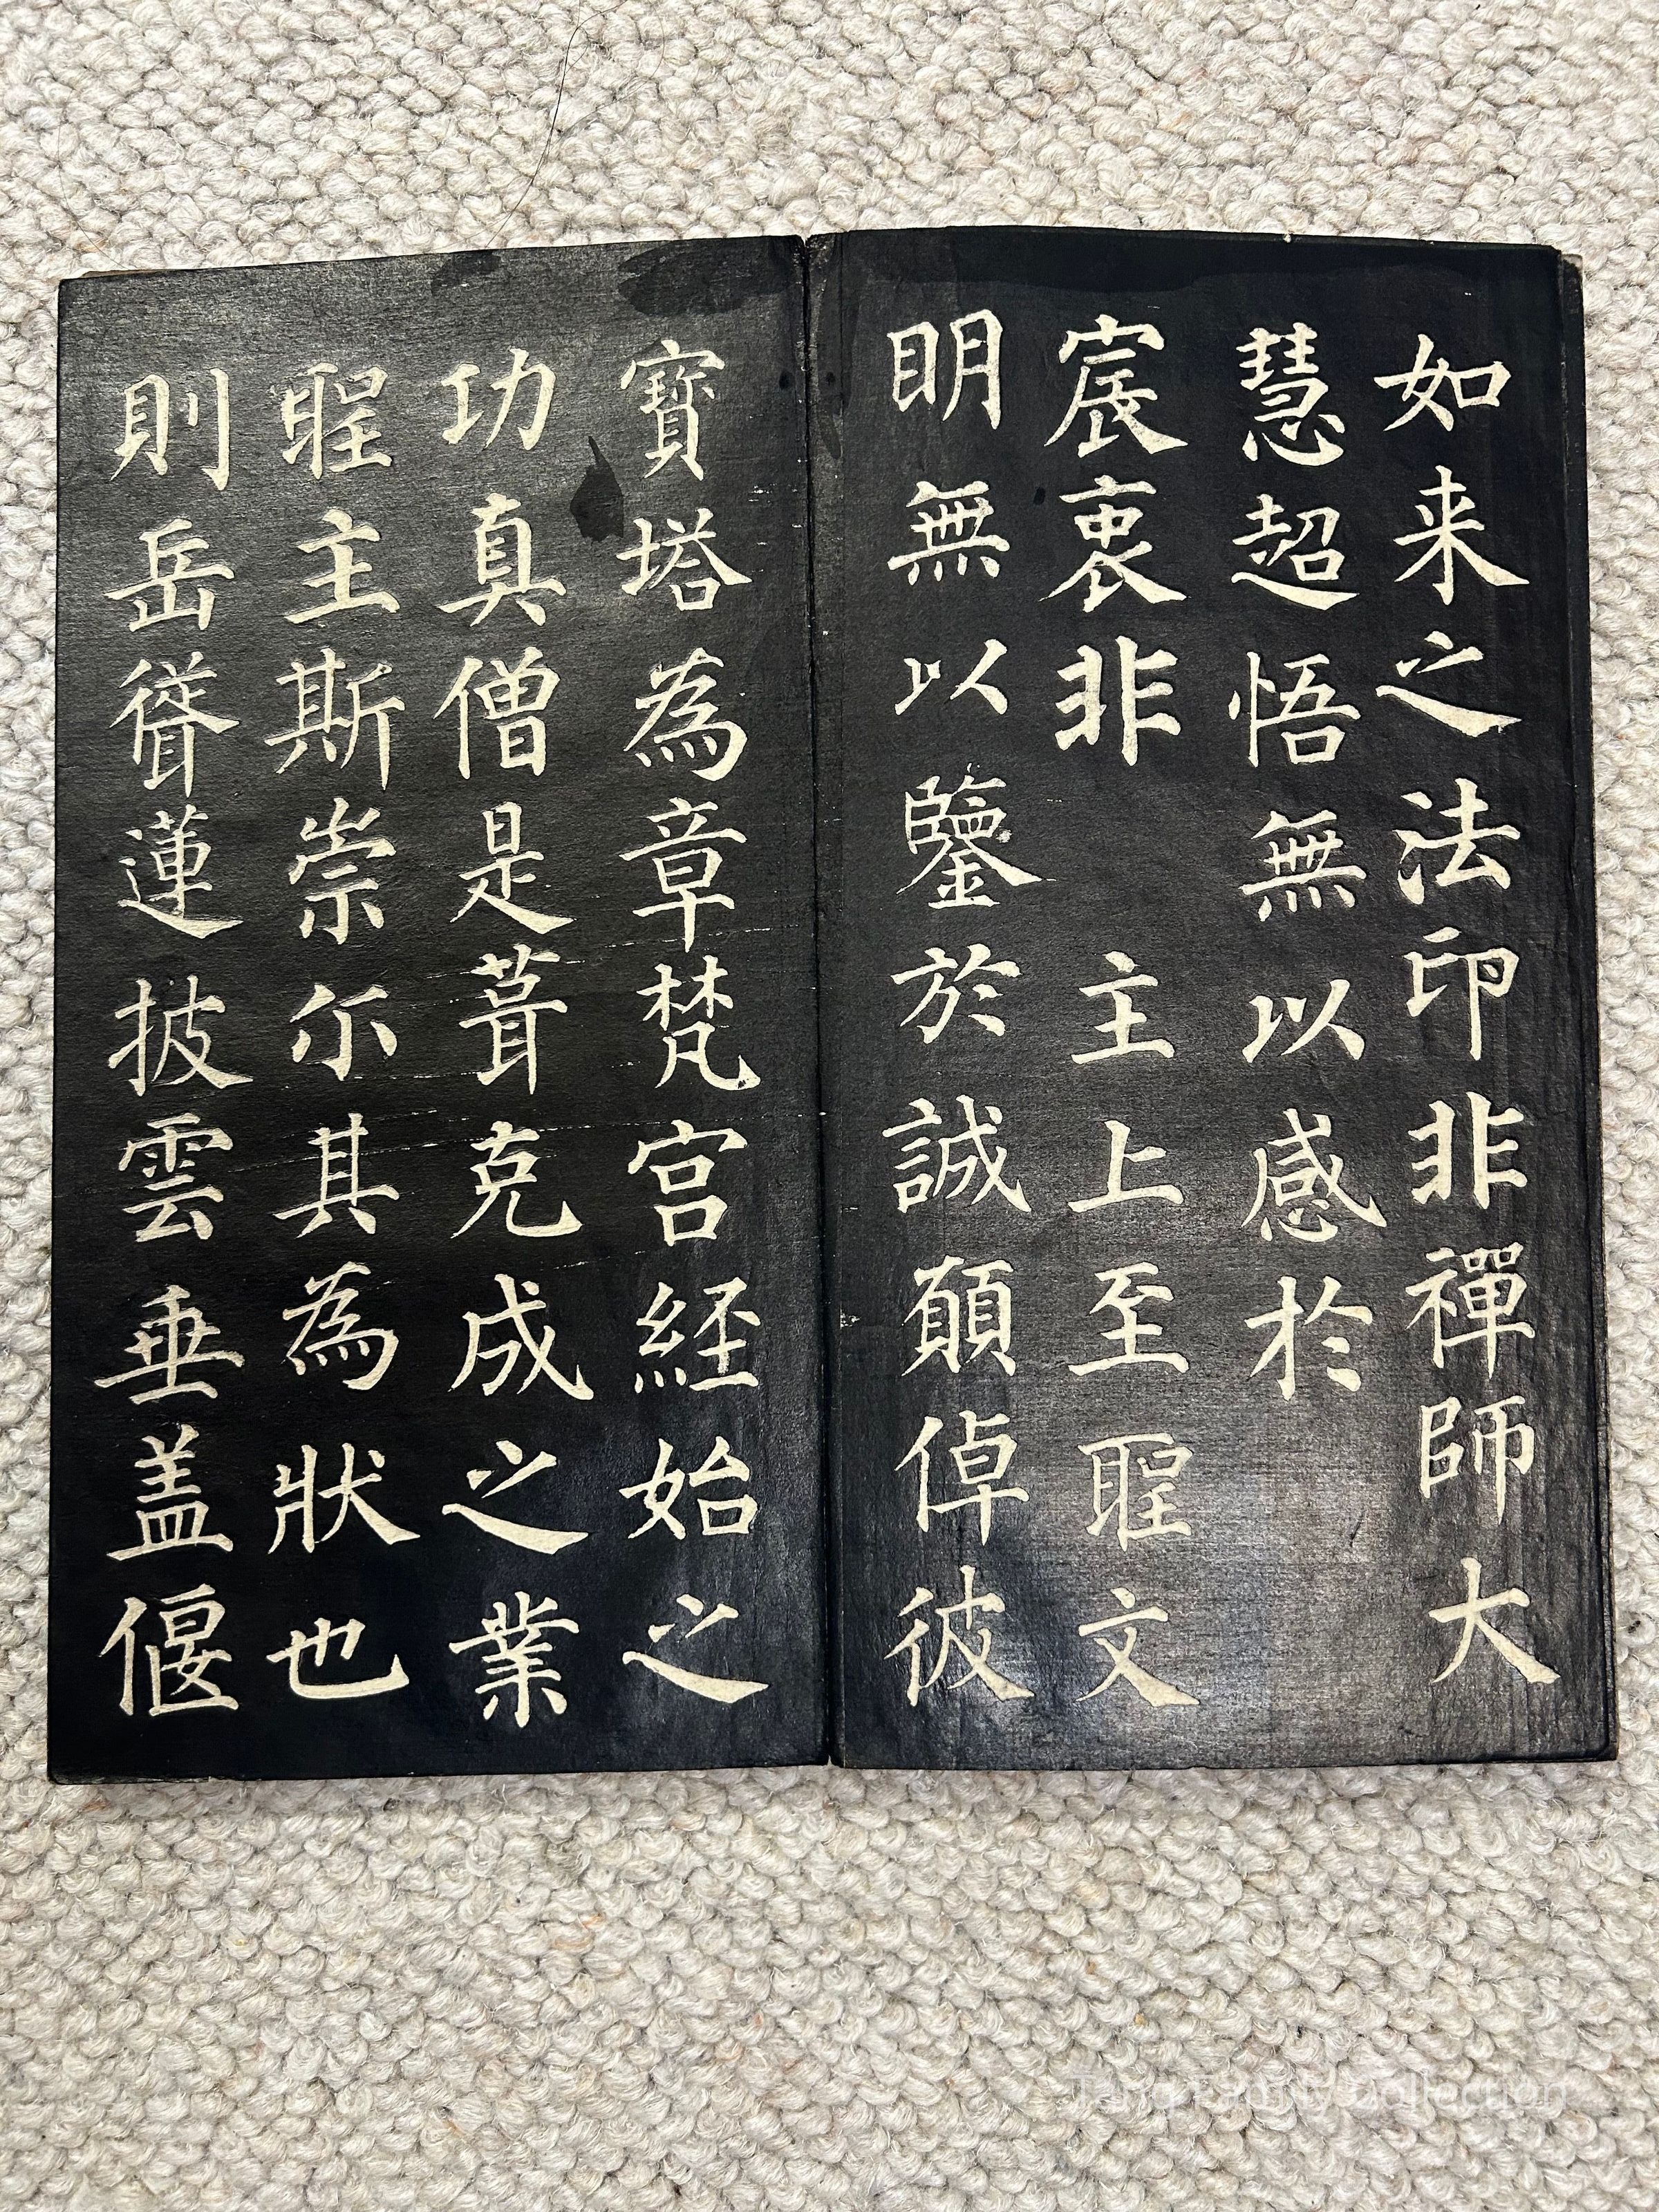 如来之法印非禪師大
慧超悟無以感於
宸衷非 主上至聖文
明無以鑒於誠願倬彼
寶塔為章梵宮経始之
功真僧是葺克成之業
聖主斯崇尓其為狀也
則岳聳蓮披雲垂盖偃
Tang Family Collection